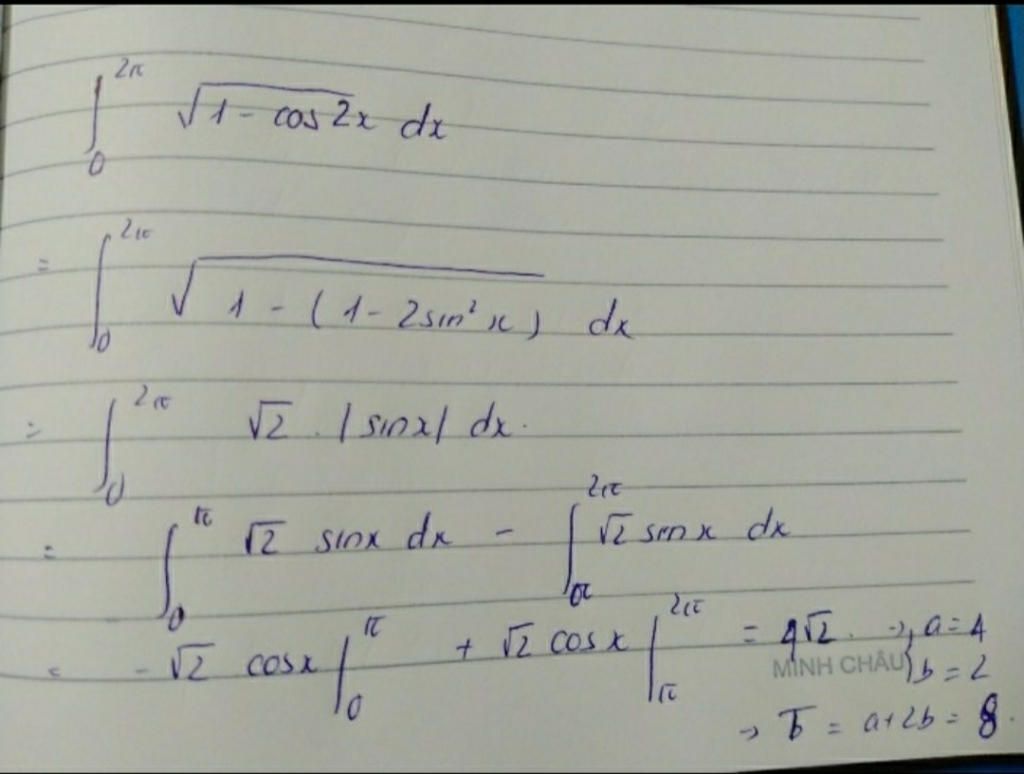 ∫₀^{2π} √(1 - cos 2x) dx
= ∫₀^{2π} √(1 - (1 - 2sin² x)) dx
= ∫₀^{2π} √2 . |sinx| dx.
= ∫₀^{π} √2 sinx dx - ∫_{π}^{2π} √2 sin x dx
= -√2 cosx |₀^{π} + √2 cosx |_{π}^{2π} = 4√2. → { a = 4
MINH CHÂU b = 2
→ T = a+2b = 8.